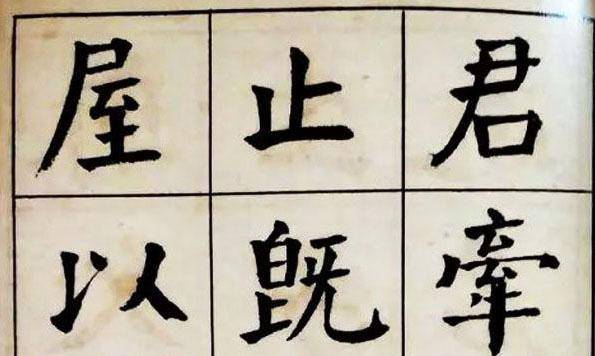 君牽
止既
屋以